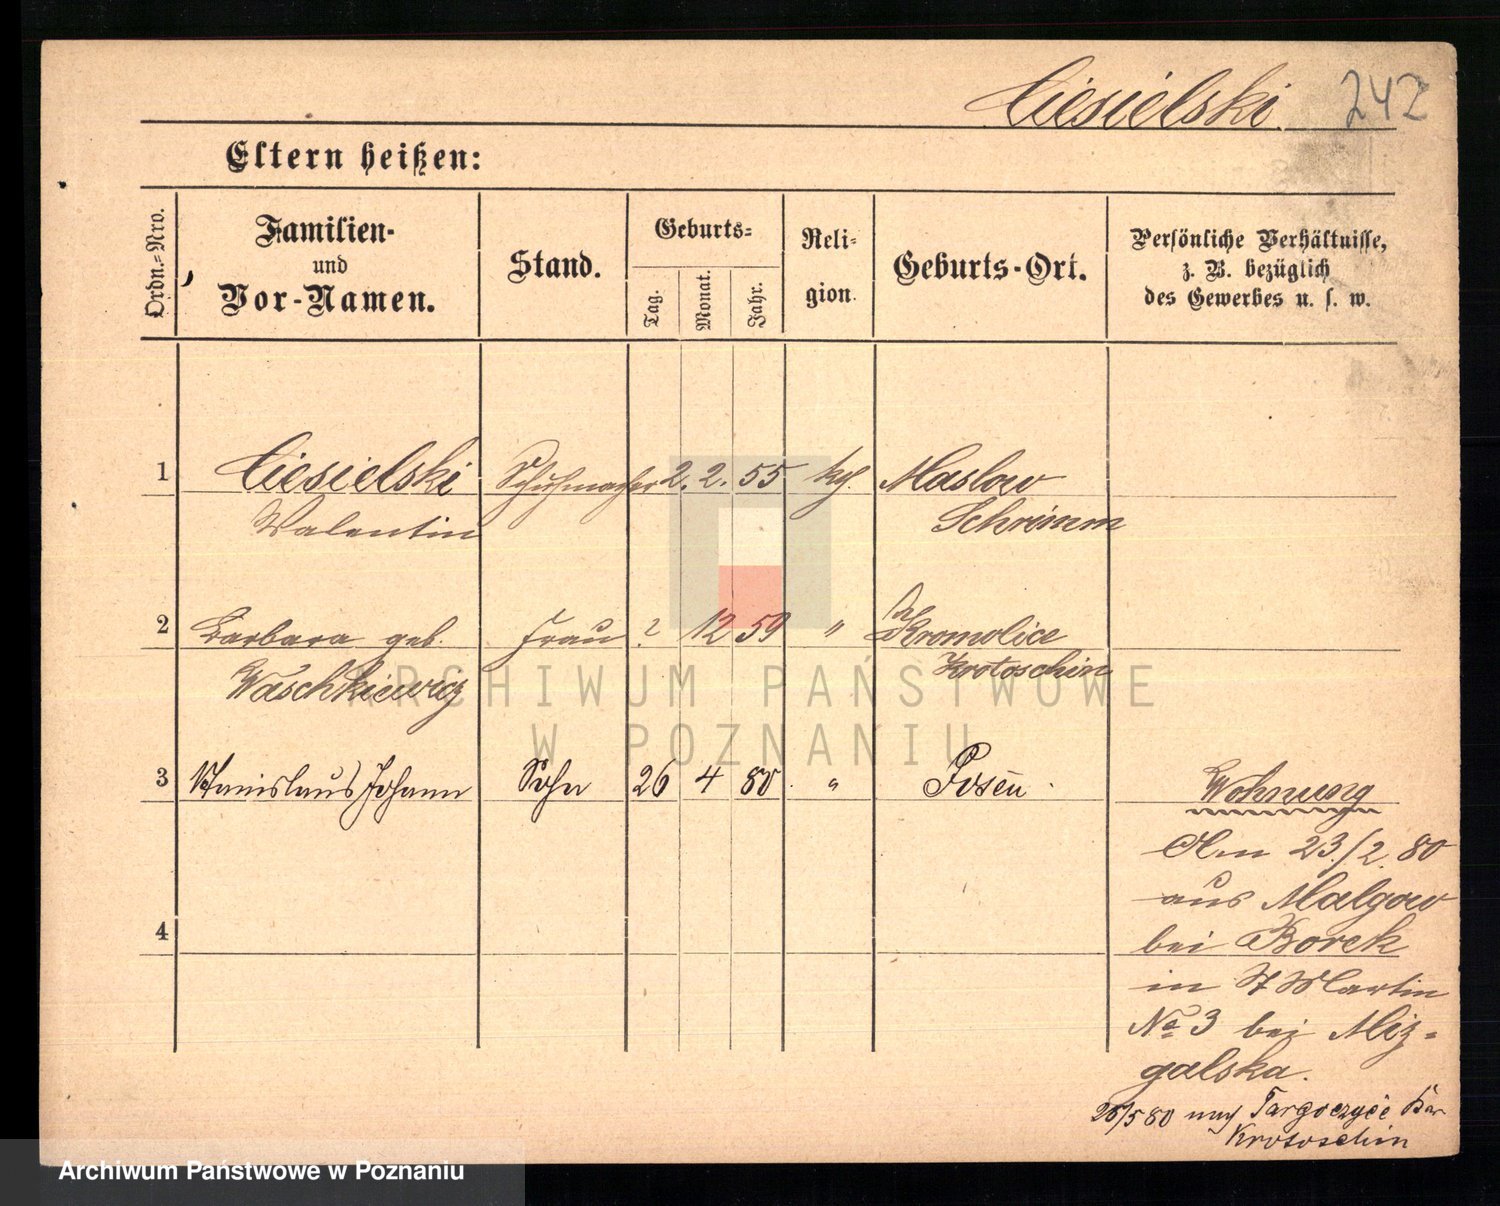 Ciesielski 242
Eltern heißen:
Ordn.-Nro.
Familien-
und
Vor-Namen.
Stand.
Geburts-
Tag.
Monat.
Jahr.
Reli-
gion.
Geburts-Ort.
Persönliche Verhältnisse,
z. B. bezüglich
des Gewerbes u. s. w.
1 Ciesielski Schuhmacher 2. 2. 55 kth. Maslow
Valentin Schrimm
2 Barbara geb. Frau ? 12 59 " Kromolice
Waschkiewicz Krotoschin
3 Stanislaus Johann Sohn 26 4 80 " Posen
Wohnung
Am 23/2. 80
aus Malgow
bei Borek
in St Martin
No 3 bei Miz-
galska.
4
26/5 80 nach Targoczyce Kr
Krotoschin
ARCHIWUM PAŃSTWOWE
W POZNANIU
Archiwum Państwowe w Poznaniu